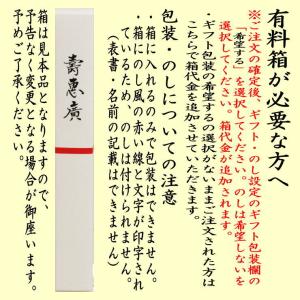 有料箱が必要な方へ
※ご注文の確定後、ギフト・のし設定のギフト包装欄の
「希望する」を選択してください。のしは希望しないを
選択してください。箱代金が追加されます。
・ギフト包装の希望するの選択がないままご注文された方は
こちらで箱代金を追加させていただきます。
包装・のしについての注意
・箱に入れるのみで包装はできません。
・箱にのし風の赤い線と文字が印字され
ているため、のしは付けられません。
(表書・名前の記載はできません)
壽恵廣
箱は見本品となりますので、
予告なく変更となる場合が御座います。
予めご了承ください。